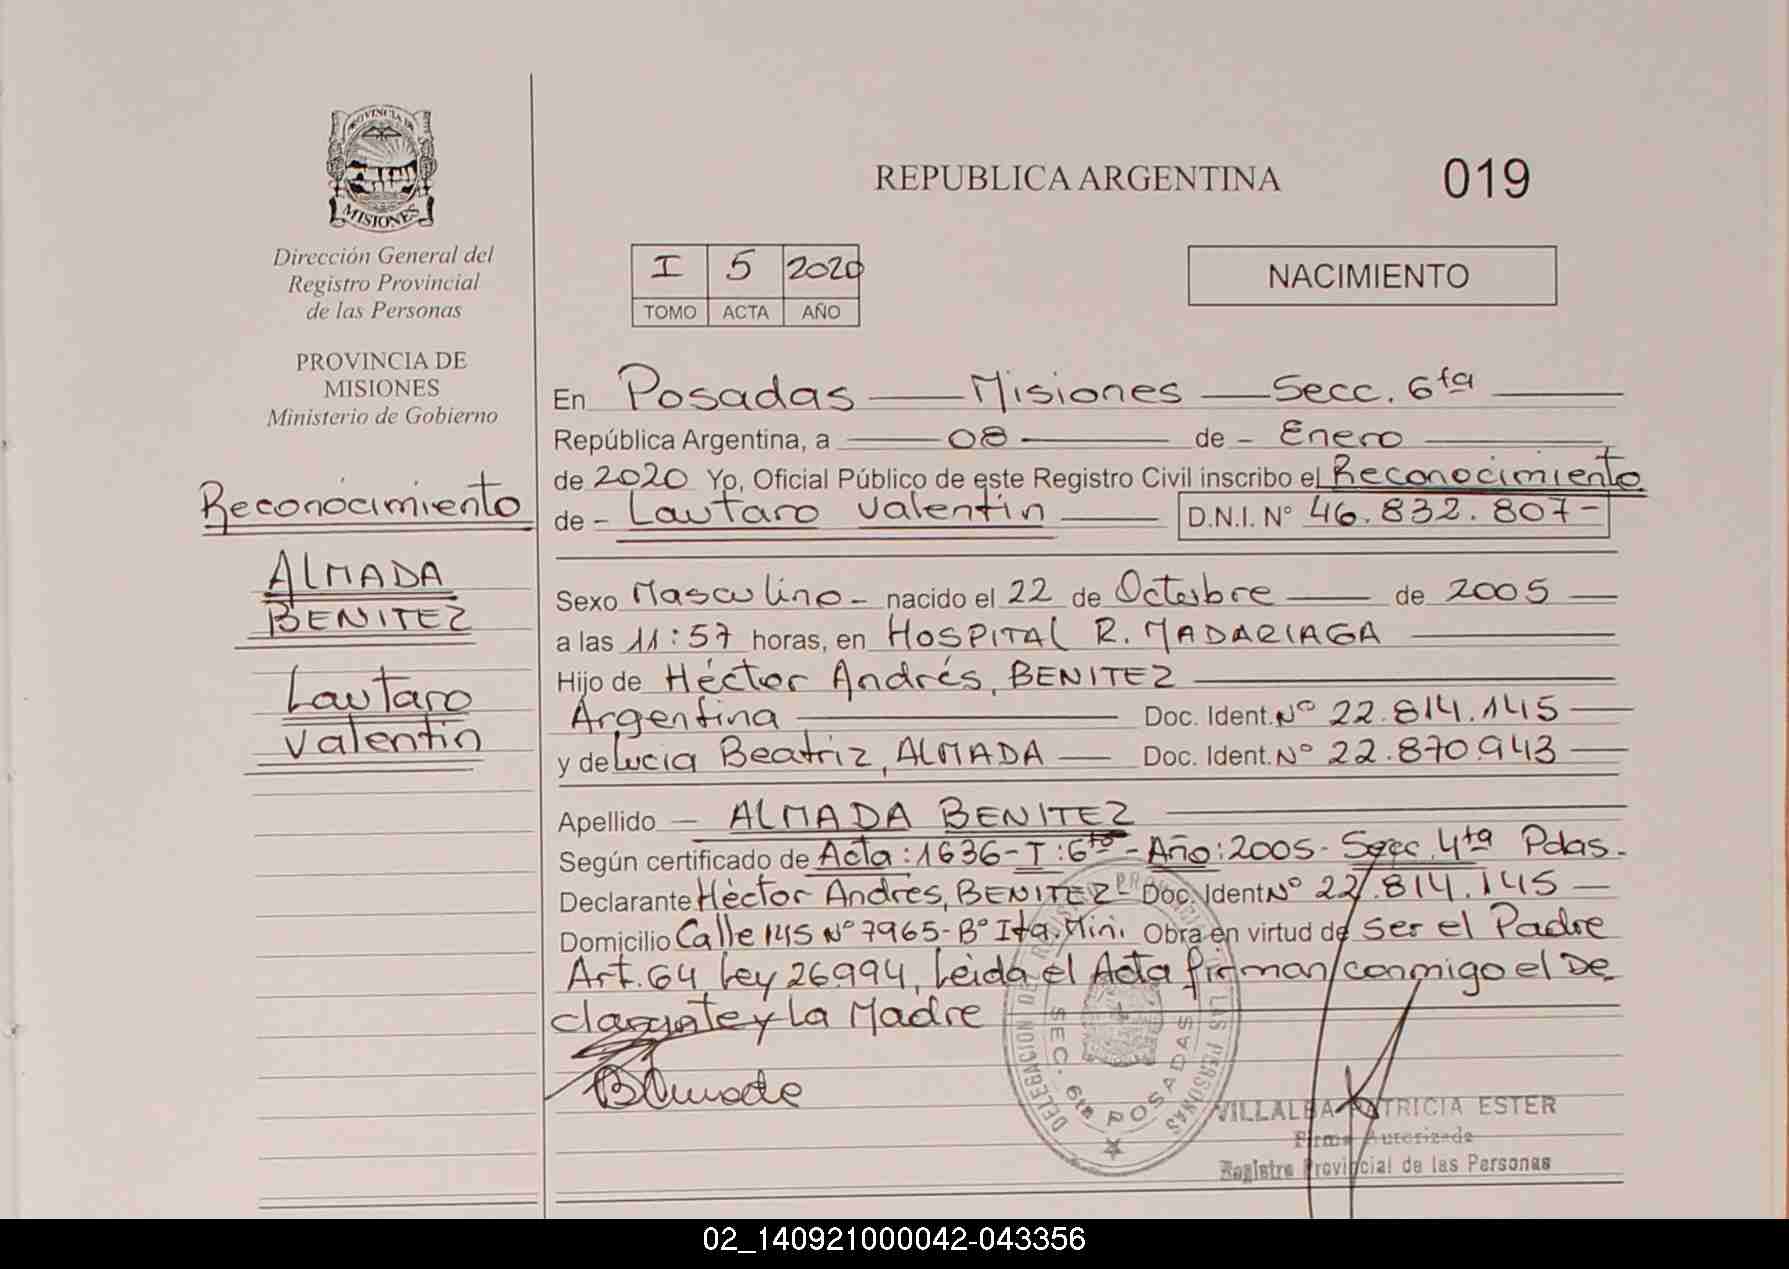 PROVINCIA DE
MISIONES
Dirección General del
Registro Provincial
de las Personas
PROVINCIA DE
MISIONES
Ministerio de Gobierno
Reconocimiento
ALMADA
BENITEZ
Lautaro
Valentin
REPUBLICA ARGENTINA 019
I 5 2020
TOMO ACTA AÑO
NACIMIENTO
En Posadas — Misiones — Secc. 6ta
República Argentina, a — 08 — de - Enero
de 2020 Yo, Oficial Público de este Registro Civil inscribo el Reconocimiento
de - Lautaro Valentin — D.N.I. N° 46.832.807-
Sexo Masculino - nacido el 22 de Octubre — de 2005 —
a las 11:57 horas, en HOSPITAL R. MADARIAGA —
Hijo de Héctor Andrés, BENITEZ —
Argentina — Doc. Ident. N° 22.814.145 —
y de Lucia Beatriz, ALMADA — Doc. Ident. N° 22.870.943 —
Apellido — ALMADA BENITEZ —
Según certificado de Acta: 1636 - T: 6to - Año: 2005 - Secc. 4ta Pdas.
Declarante Héctor Andres, BENITEZ - Doc. Ident N° 22.814.145 —
Domicilio Calle 145 N° 7965 - B° Ita. Mini. Obra en virtud de ser el Padre
Art. 64 Ley 26994, Leida el Acta firman conmigo el De
clarante y La Madre
BAlmada
DELEGACION DE REGISTRO PROVINCIAL DE LAS PERSONAS
SEC. 6ta POSADAS
VILLALBA PATRICIA ESTER
Firma Autorizada
Registro Provincial de las Personas
02_140921000042-043356